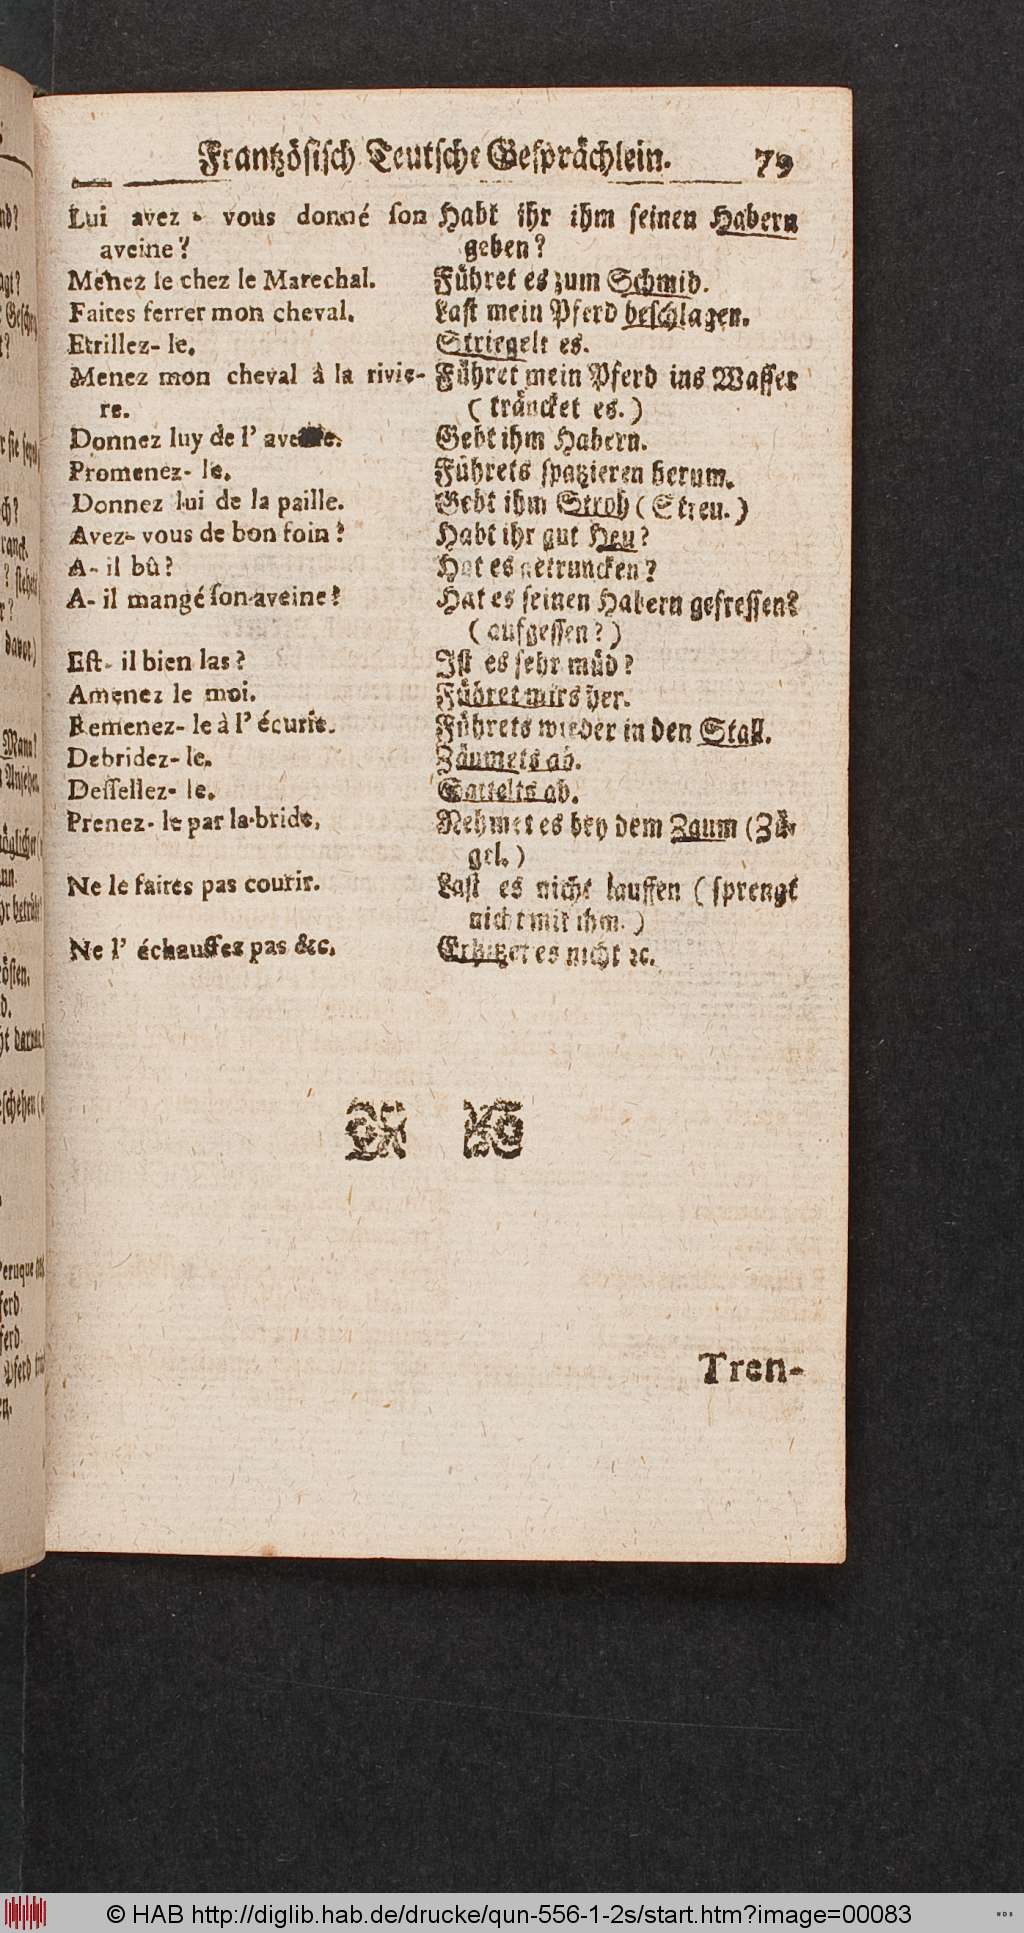 Frantzösisch Teutsche Gesprächlein. 79
Lui avez-vous donné ſon
aveine?
Menez le chez le Marechal.
Faites ferrer mon cheval.
Etrillez-le.
Menez mon cheval à la rivie-
re.
Donnez luy de l'
Promenez-le.
Donnez lui de la paille.
Avez-vous de bon foin?
A-il bû?
A-il mangé ſon aveine?
Eſt-il bien las?
Amenez le moi.
Remenez-le à l'écurie.
Debridez-le.
Deſſellez-le.
Prenez-le par la bride.
Ne le faites pas courir.
Ne l'échauffez pas &c.
Habt ihr ihm ſeinen Habern
geben?
Führet es zum Schmid.
Laſt mein Pferd beſchlagen.
Striegelt es.
Führet mein Pferd ins Waſſer
(träncket es.)
Gebt ihm Habern.
Führets ſpatzieren herum.
Gebt ihm Stroh (Streu.)
Habt ihr gut Heu?
Hat es getruncken?
Hat es ſeinen Habern gefreſſen?
(aufgeſſen?)
Iſt es ſehr müd?
Führet mirs her.
Führets wieder in den Stall.
Zäumets ab.
Sattelts ab.
Nehmet es bey dem Zaum (Zü-
gel.)
Laſt es nicht lauffen (ſprengt
nicht mit ihm.)
Erhitzet es nicht ꝛc.
Tren-
© HAB http://diglib.hab.de/drucke/qun-556-1-2s/start.htm?image=00083